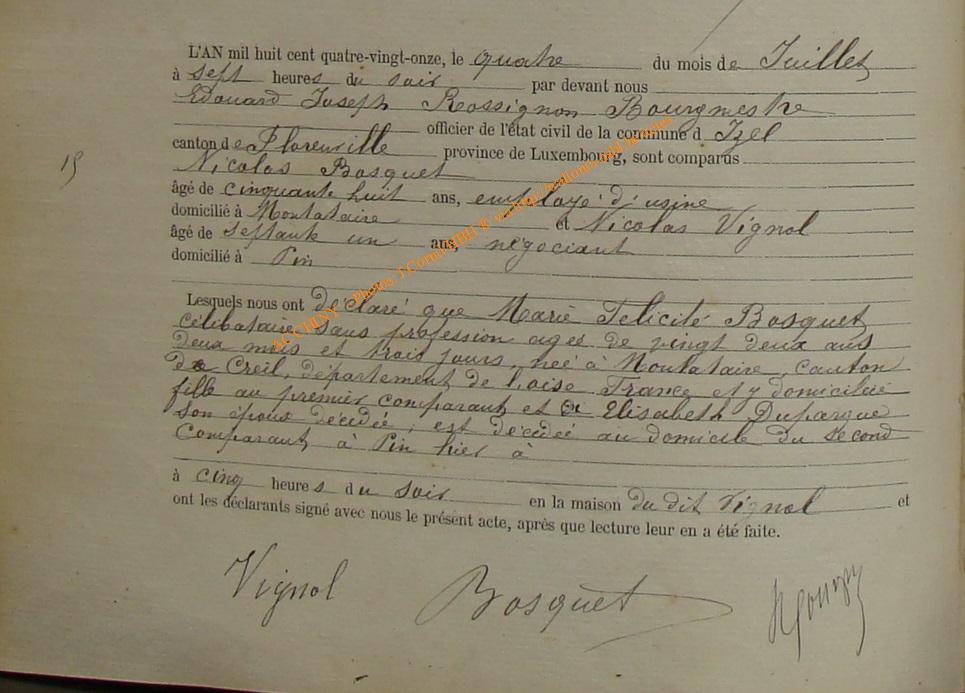 L'AN mil huit cent quatre-vingt-onze, le quatre du mois de Juillet
à sept heures du soir par devant nous
Edouard Joseph Rossignon Bourgmestre
officier de l'état civil de la commune d Izel
canton de Florenville province de Luxembourg, sont comparus
Nicolas Bosquet
âgé de cinquante huit ans, employé d'usine
domicilié à Montataire et Nicolas Vignol
âgé de septante un ans, négociant
domicilié à Pin
Lesquels nous ont déclaré que Marie Félicité Bosquet
célibataire sans profession agée de vingt deux ans
deux mois et trois jours, née à Montataire, canton
de Creil, département de l'oise France et y domiciliée
fille du premier comparant et de Elisabeth Duparque
son épouse décédée, est décédée au domicile du second
Comparant à Pin hier à
à cinq heures du soir en la maison du dit Vignol et
ont les déclarants signé avec nous le présent acte, après que lecture leur en a été faite.
Vignol Bosquet
15
ACCHINY - Photos: J